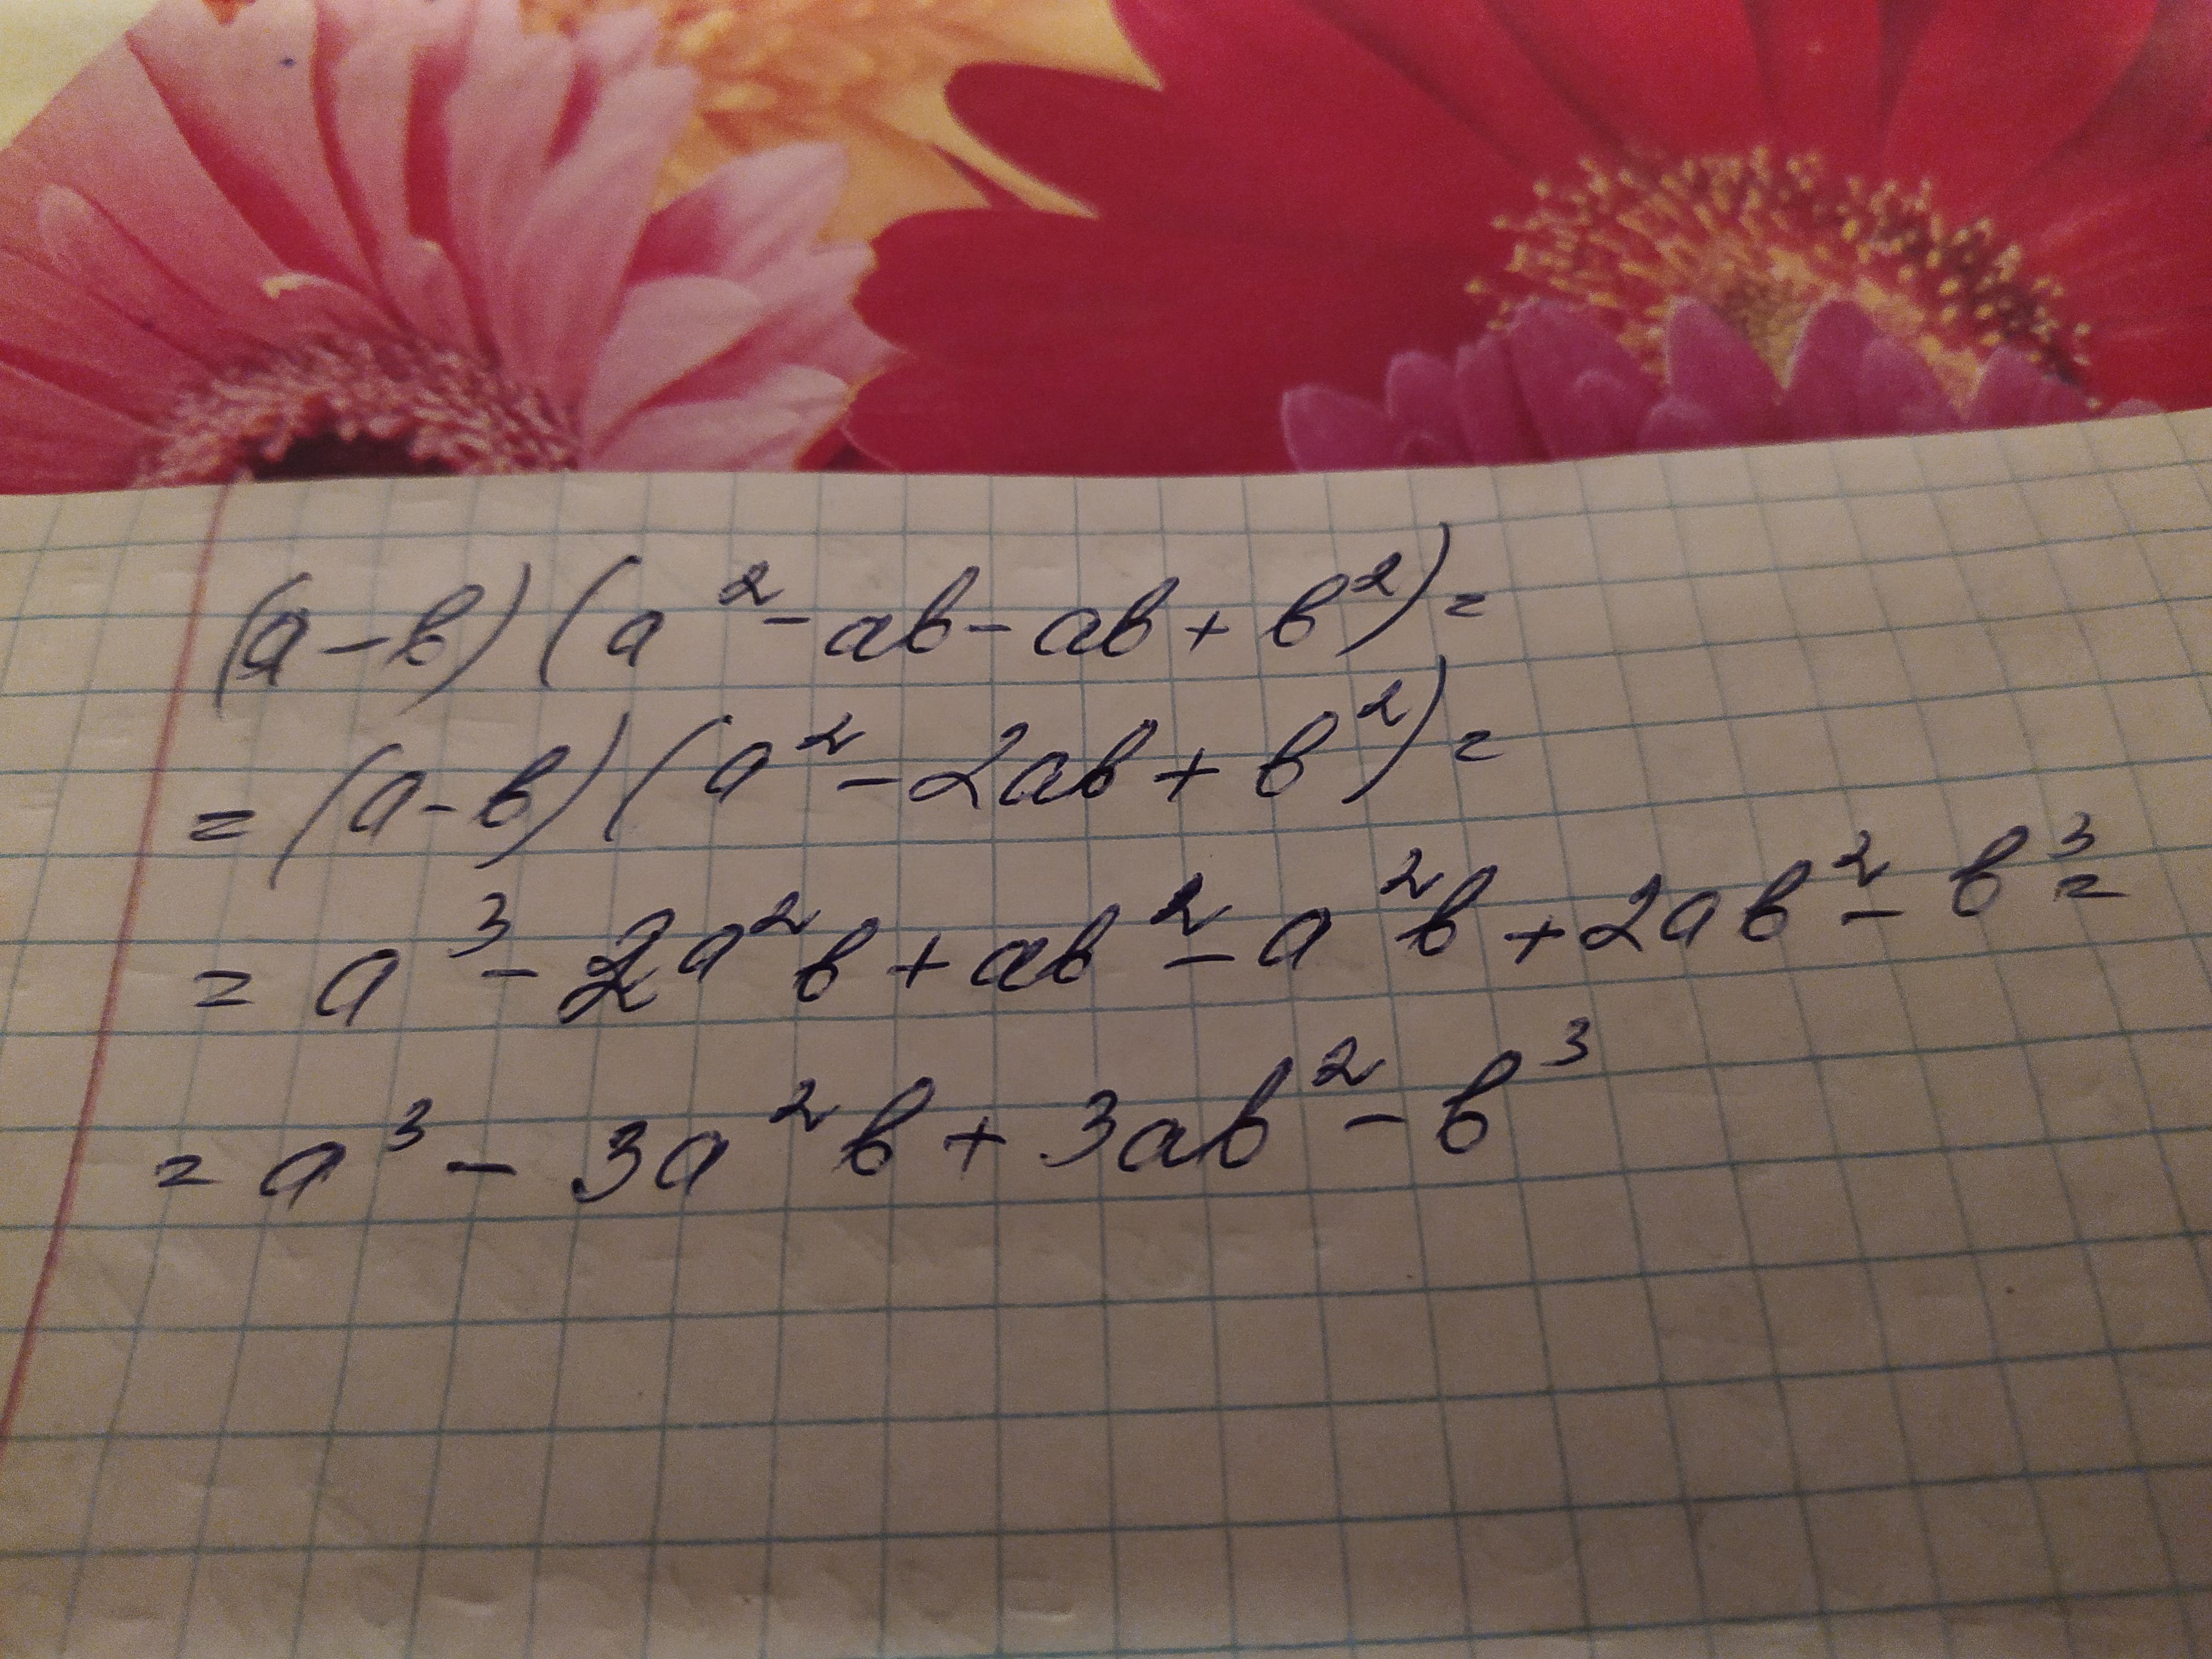 (a-b)(a²-ab-ab+b²)=
=(a-b)(a²-2ab+b²)=
=a³-2a²b+ab²-a²b+2ab²-b³=
=a³-3a²b+3ab²-b³